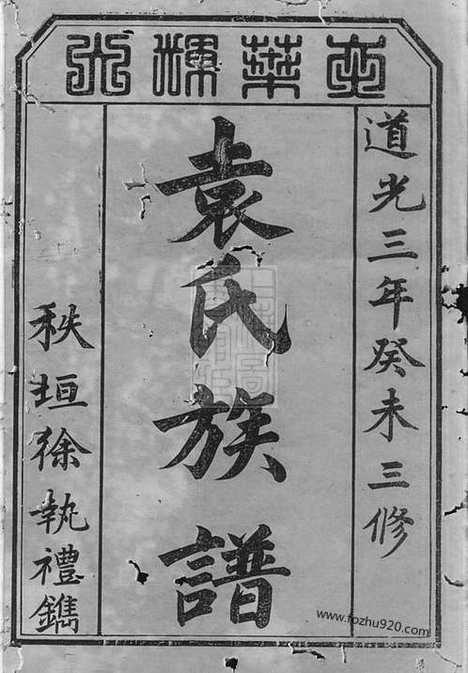 道光三年癸未三修
袁氏族譜
秩垣徐執禮鐫
www.fozhu920.com